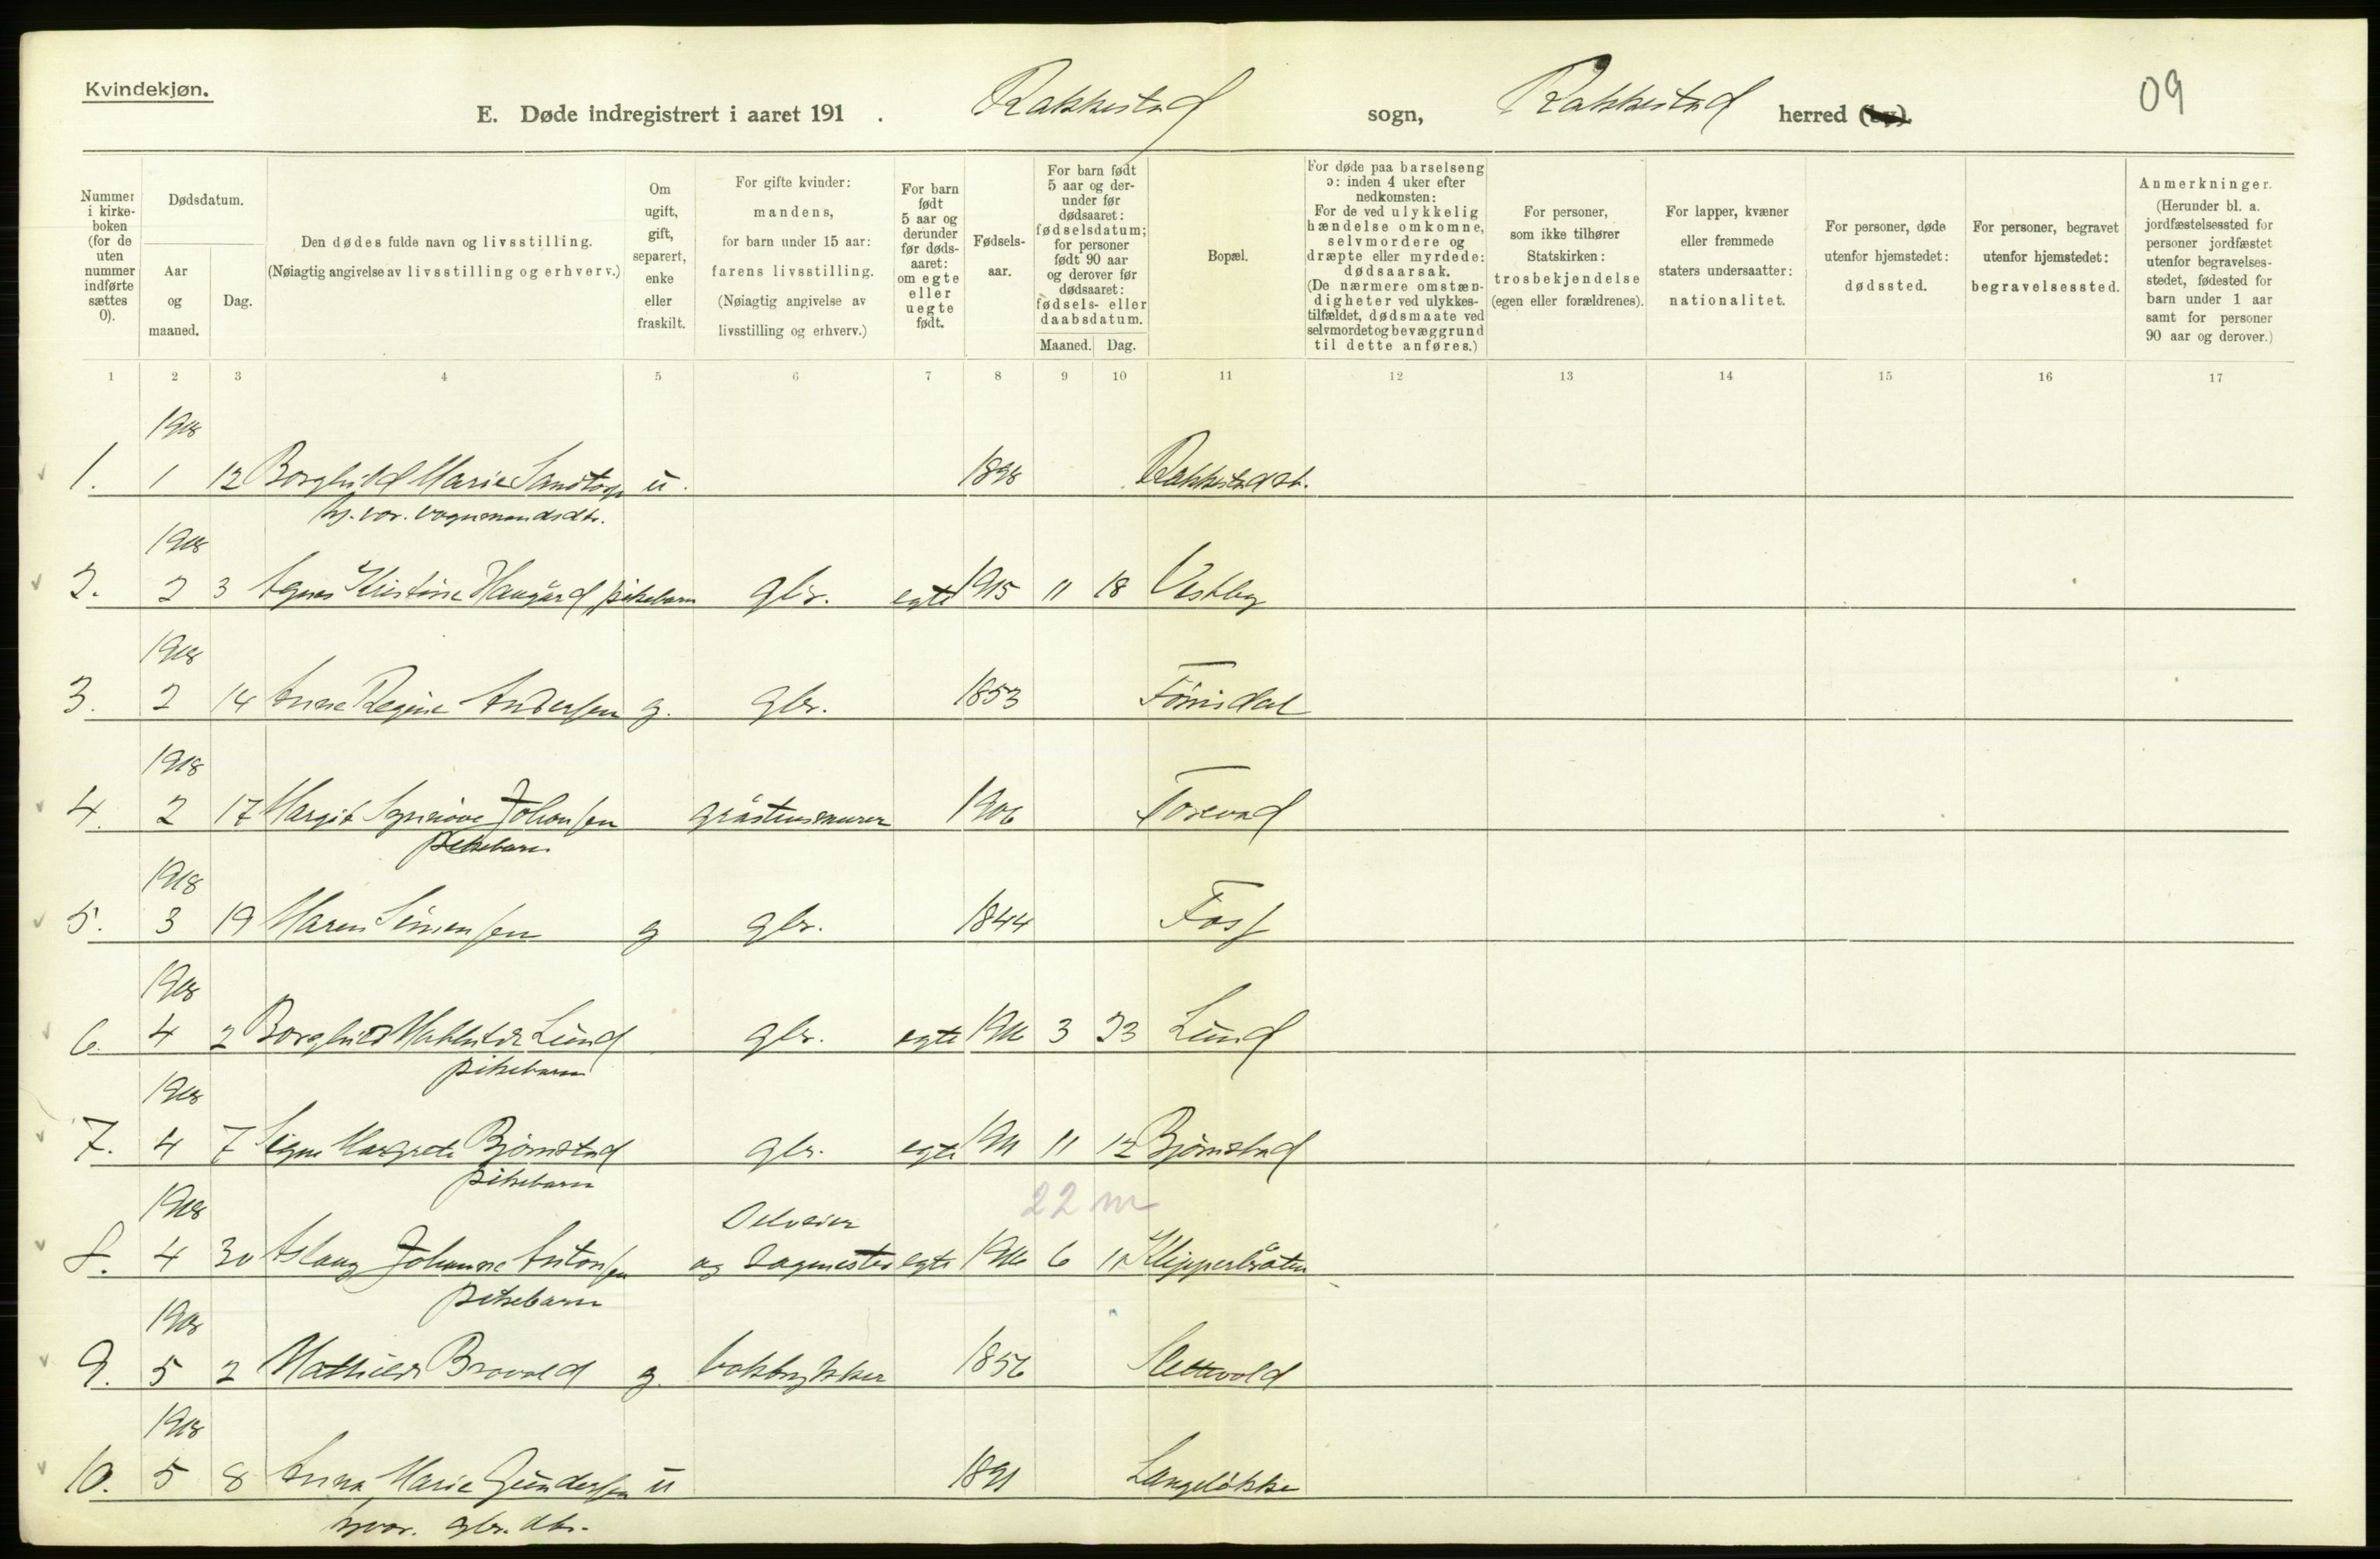 Kvindekjøn.
E. Døde indregistrert i aaret 191 . Rakkestad sogn, Rakkestad herred (by).
09
Nummer i kirkeboken (for de uten nummer indførte sættes 0).
Dødsdatum.
Aar og maaned.
Dag.
Den dødes fulde navn og livsstilling.
(Nøiagtig angivelse av livsstilling og erhverv.)
Om ugift, gift, separert, enke eller fraskilt.
For gifte kvinder: mandens, for barn under 15 aar: farens livsstilling.
(Nøiagtig angivelse av livsstilling og erhverv.)
For barn født 5 aar og derunder før dødsaaret: om egte eller uegte født.
Fødselsaar.
For barn født 5 aar og derunder før dødsaaret: fødselsdatum; for personer født 90 aar og derover før dødsaaret: fødsels- eller daabsdatum.
Maaned. Dag.
Bopæl.
For døde paa barselseng ɔ: inden 4 uker efter nedkomsten:
For de ved ulykkelig hændelse omkomne, selvmordere og dræpte eller myrdede: dødsaarsak.
(De nærmere omstændigheter ved ulykkestilfældet, dødsmaate ved selvmordet og bevæggrund til dette anføres.)
For personer, som ikke tilhører Statskirken: trosbekjendelse (egen eller forældrenes).
For lapper, kvæner eller fremmede staters undersaatter: nationalitet.
For personer, døde utenfor hjemstedet: dødssted.
For personer, begravet utenfor hjemstedet: begravelsessted.
Anmerkninger.
(Herunder bl. a. jordfæstelsessted for personer jordfæstet utenfor begravelsesstedet, fødested for barn under 1 aar samt for personer 90 aar og derover.)
1 2 3 4 5 6 7 8 9 10 11 12 13 14 15 16 17
1918
1. 1 12 Borghild Marie u. 1898 Rakkestad st.
hj. vær. vognmandsdtr.
1918
2. 2 3 Agnes Kristine Haugård, pikebarn gbr. egte 1915 11 18 Vestby
1918
3. 2 14 Anne Regine Andersen g. gbr. 1853
1918
4. 2 17 Margit Johansen gråstensmurer 1906
pikebarn
1918
5. 3 19 Maren Simensen g gbr. 1844 Foss
1918
6. 4 2 Borghild Mathilde Lund gbr. egte 1916 3 23 Lund
pikebarn
1918
7. 4 7 Signe Margrete Bjørnstad gbr. egte 11 12 Bjørnstad
pikebarn
22 m
1918 Selveier
8. 4 30 Aslaug Johanne Antonsen og sagmester egte 1916 6 Klipperbråten
pikebarn
1918
9. 5 2 Mathilde g. 1856 Slettevold
1918
10. 5 8 Anna Marie Gundersen u 1891 Langeløkke
gbr. dtr.